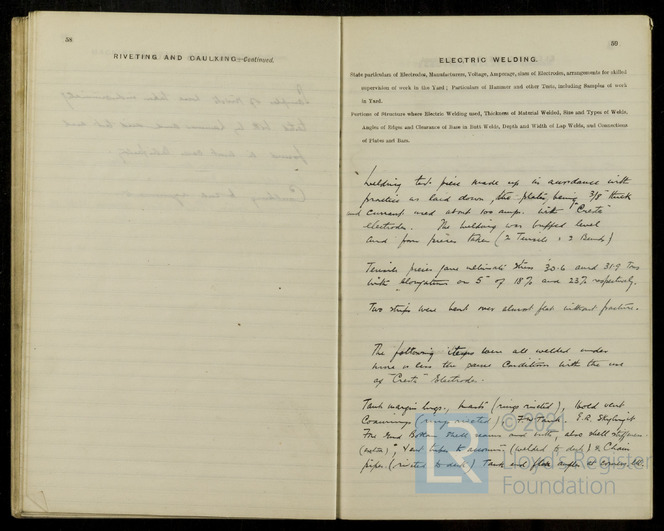 58
RIVETING AND CAULKING—Continued.
59
ELECTRIC WELDING.
State particulars of Electrodes, Manufacturers, Voltage, Amperage, sizes of Electrodes, arrangements for skilled
supervision of work in the Yard; Particulars of Hammer and other Tests, including Samples of work
in Yard.
Portions of Structure where Electric Welding used, Thickness of Material Welded, Size and Types of Welds,
Angles of Edges and Clearance of Bars in Butt Welds, Depth and Width of Lap Welds, and Connections
of Plates and Bars.
Welding test piece made up in accordance with
practice as laid down, the plates being 3/8" thick
and current used about 100 amp. with "Cresta"
electrodes. The welding was buffed level
and four pieces taken (2 Tensile & 2 Bends)
Tensile pieces gave ultimate stress 30.6 and 31.9 Tons
with elongation on 5" of 18% and 23% respectively.
Two strips were bent over almost flat without fracture.
The following items were all welded under
more or less the same conditions with the use
of "Cresta" Electrodes.
Tank margin lugs, masts (rings riveted), hold vent
Coamings (rings riveted) F.W. Tank E.R. Skylight
Fore End Bottom Shell seams and butts, also shell stiffeners
(extra), & vent to (welded to deck) & Chain
pipes (riveted to deck). Tank end floor angles at
© 2021
LR
Lloyd's Register
Foundation